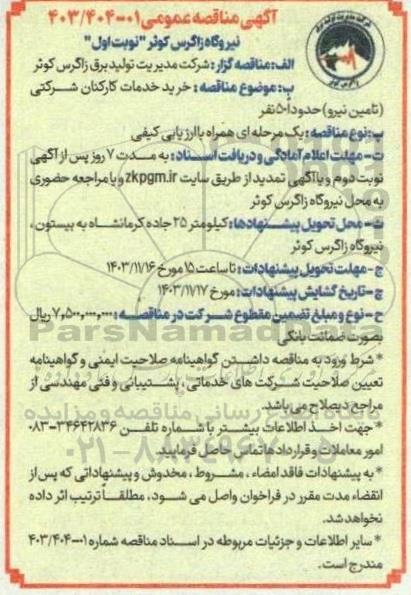 آگهی مناقصه عمومی ۰۱-۴۰۳/۴۰۴
نیروگاه زاگرس کوثر "نوبت اول"
الف: مناقصه گزار: شرکت مدیریت تولید برق زاگرس کوثر
ب: موضوع مناقصه: خرید خدمات کارکنان شرکتی
(تامین نیرو) حدوداً ۵۰ نفر
پ: نوع مناقصه: یک مرحله ای همراه با ارزیابی کیفی
ت- مهلت اعلام آمادگی و دریافت اسناد: به مدت ۷ روز پس از آگهی
نوبت دوم و یا آگهی تمدید از طریق سایت zkpgm.ir و یا مراجعه حضوری
به محل نیروگاه زاگرس کوثر
ث- محل تحویل پیشنهادها: کیلومتر ۲۵ جاده کرمانشاه به بیستون،
نیروگاه زاگرس کوثر
ج- مهلت تحویل پیشنهادات: تا ساعت ۱۵ مورخ ۱۴۰۳/۱۱/۱۶
چ- تاریخ گشایش پیشنهادات: مورخ ۱۴۰۳/۱۱/۱۷
ح- نوع و مبلغ تضمین مقطوع شرکت در مناقصه: ۷,۵۰۰,۰۰۰,۰۰۰ ریال
بصورت ضمانت بانکی
* شرط ورود به مناقصه داشتن گواهینامه صلاحیت ایمنی و گواهینامه
تعیین صلاحیت شرکت های خدماتی، پشتیبانی و فنی مهندسی از
مراجع ذیصلاح می باشد.
* جهت اخذ اطلاعات بیشتر با شماره تلفن ۳۴۶۴۲۸۳۶-۰۸۳
امور معاملات و قراردادها تماس حاصل فرمایید.
* به پیشنهادات فاقد امضاء، مشروط، مخدوش و پیشنهاداتی که پس از
انقضاء مدت مقرر در فراخوان واصل می شود، مطلقاً ترتیب اثر داده
نخواهد شد.
* سایر اطلاعات و جزئیات مربوطه در اسناد مناقصه شماره ۰۱-۴۰۳/۴۰۴
مندرج است.
ParsNamadData